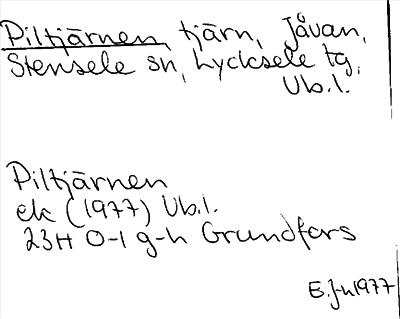 Piltjärnen, tjärn, Jåvan,
Stensele sn, Lycksele tg,
Vb.l.
Piltjärnen
ek (1977) Vb.l.
23H 0-1 g-h Grundfors
1977